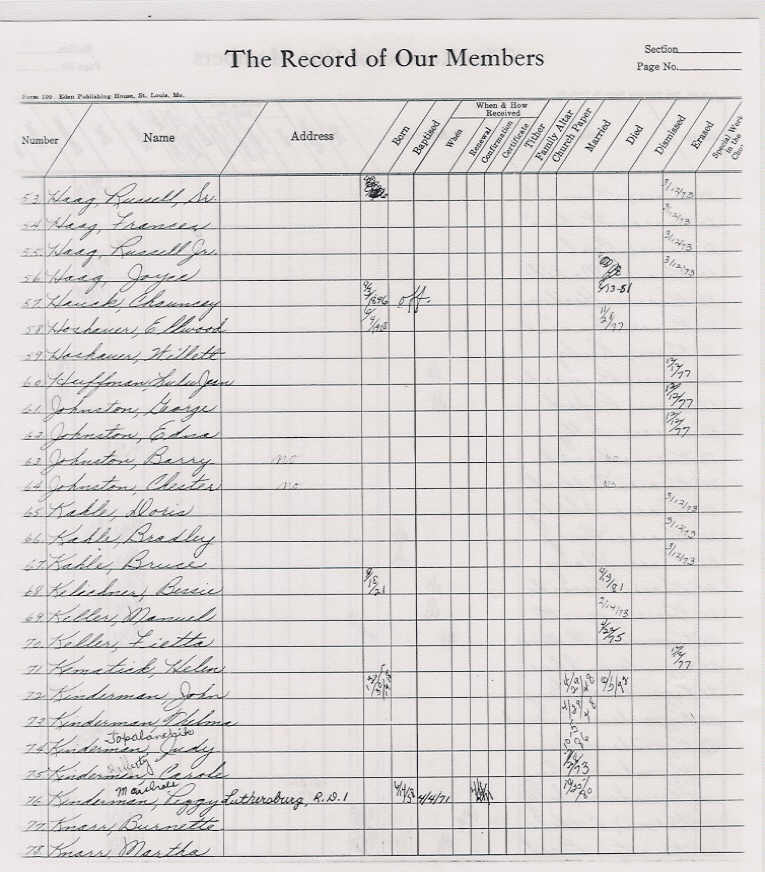 The Record of Our Members
Section
Page No.
Form 100 Eden Publishing House, St. Louis, Mo.
Number Name Address Born Baptised When & How Received When Renewal Confirmation Certificate Tither Family Altar Church Paper Married Died Dismissed Erased Special Work in the
53 Haag, Russell, Sr. 3/12/73
54 Haag, Frances 3/12/73
55 Haag, Russell Jr. 3/12/73
56 Haag, Joyce 3/12/73
57 Hauck, Chauncey off. 8/13-51
58 Hoshauer, Ellwood
59 Hoshauer, Willett
60 Huffman, Lulu Jean
61 Johnston, George 12/12/77
62 Johnston, Edna 12/12/77
63 Johnston, Barry no no
64 Johnston, Chester no no
65 Kahle, Doris 3/12/73
66 Kahle, Bradley 3/12/73
67 Kahle, Bruce 3/12/73
68 Kelichner, Bessie
69 Keller, Manuel 2/14/73
70 Keller, Fietta
71 Kematick, Helen
72 Kinderman, John
73 Kinderman, Thelma
74 Kinderman, Judy
75 Kinderman, Carole
76 Kinderman, Peggy Luthersburg, R.D.1 4/4/71
77 Knarr, Burnette
78 Knarr, Martha